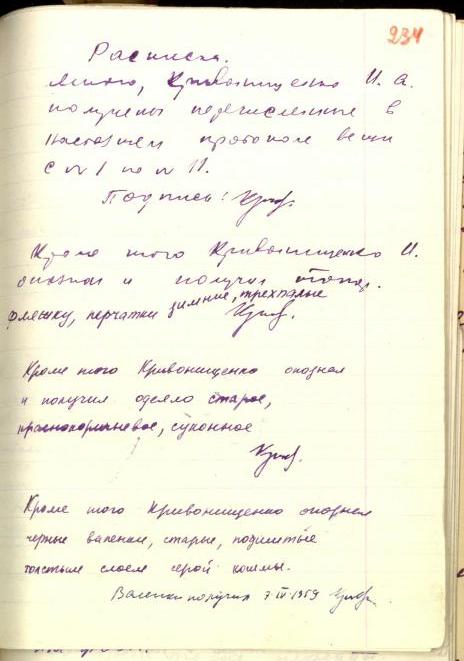 234
Расписка.
Мною, Кривонищенко И. А.
получены перечисленные в
настоящем протоколе вещи
с № 1 по № 11.
Подпись: Крив.
Кроме того Кривонищенко И.
опознал и получил топор.
флягу, перчатки зимние, трехпалые
Крив.
Кроме того Кривонищенко опознал
и получил одеяло старое,
краснокоричневое, суконное
Крив.
Кроме того Кривонищенко опознал
черные валенки, старые, подшитые
толстым слоем серой кошмы.
Валенки получил 7 IV 1959 Крив.